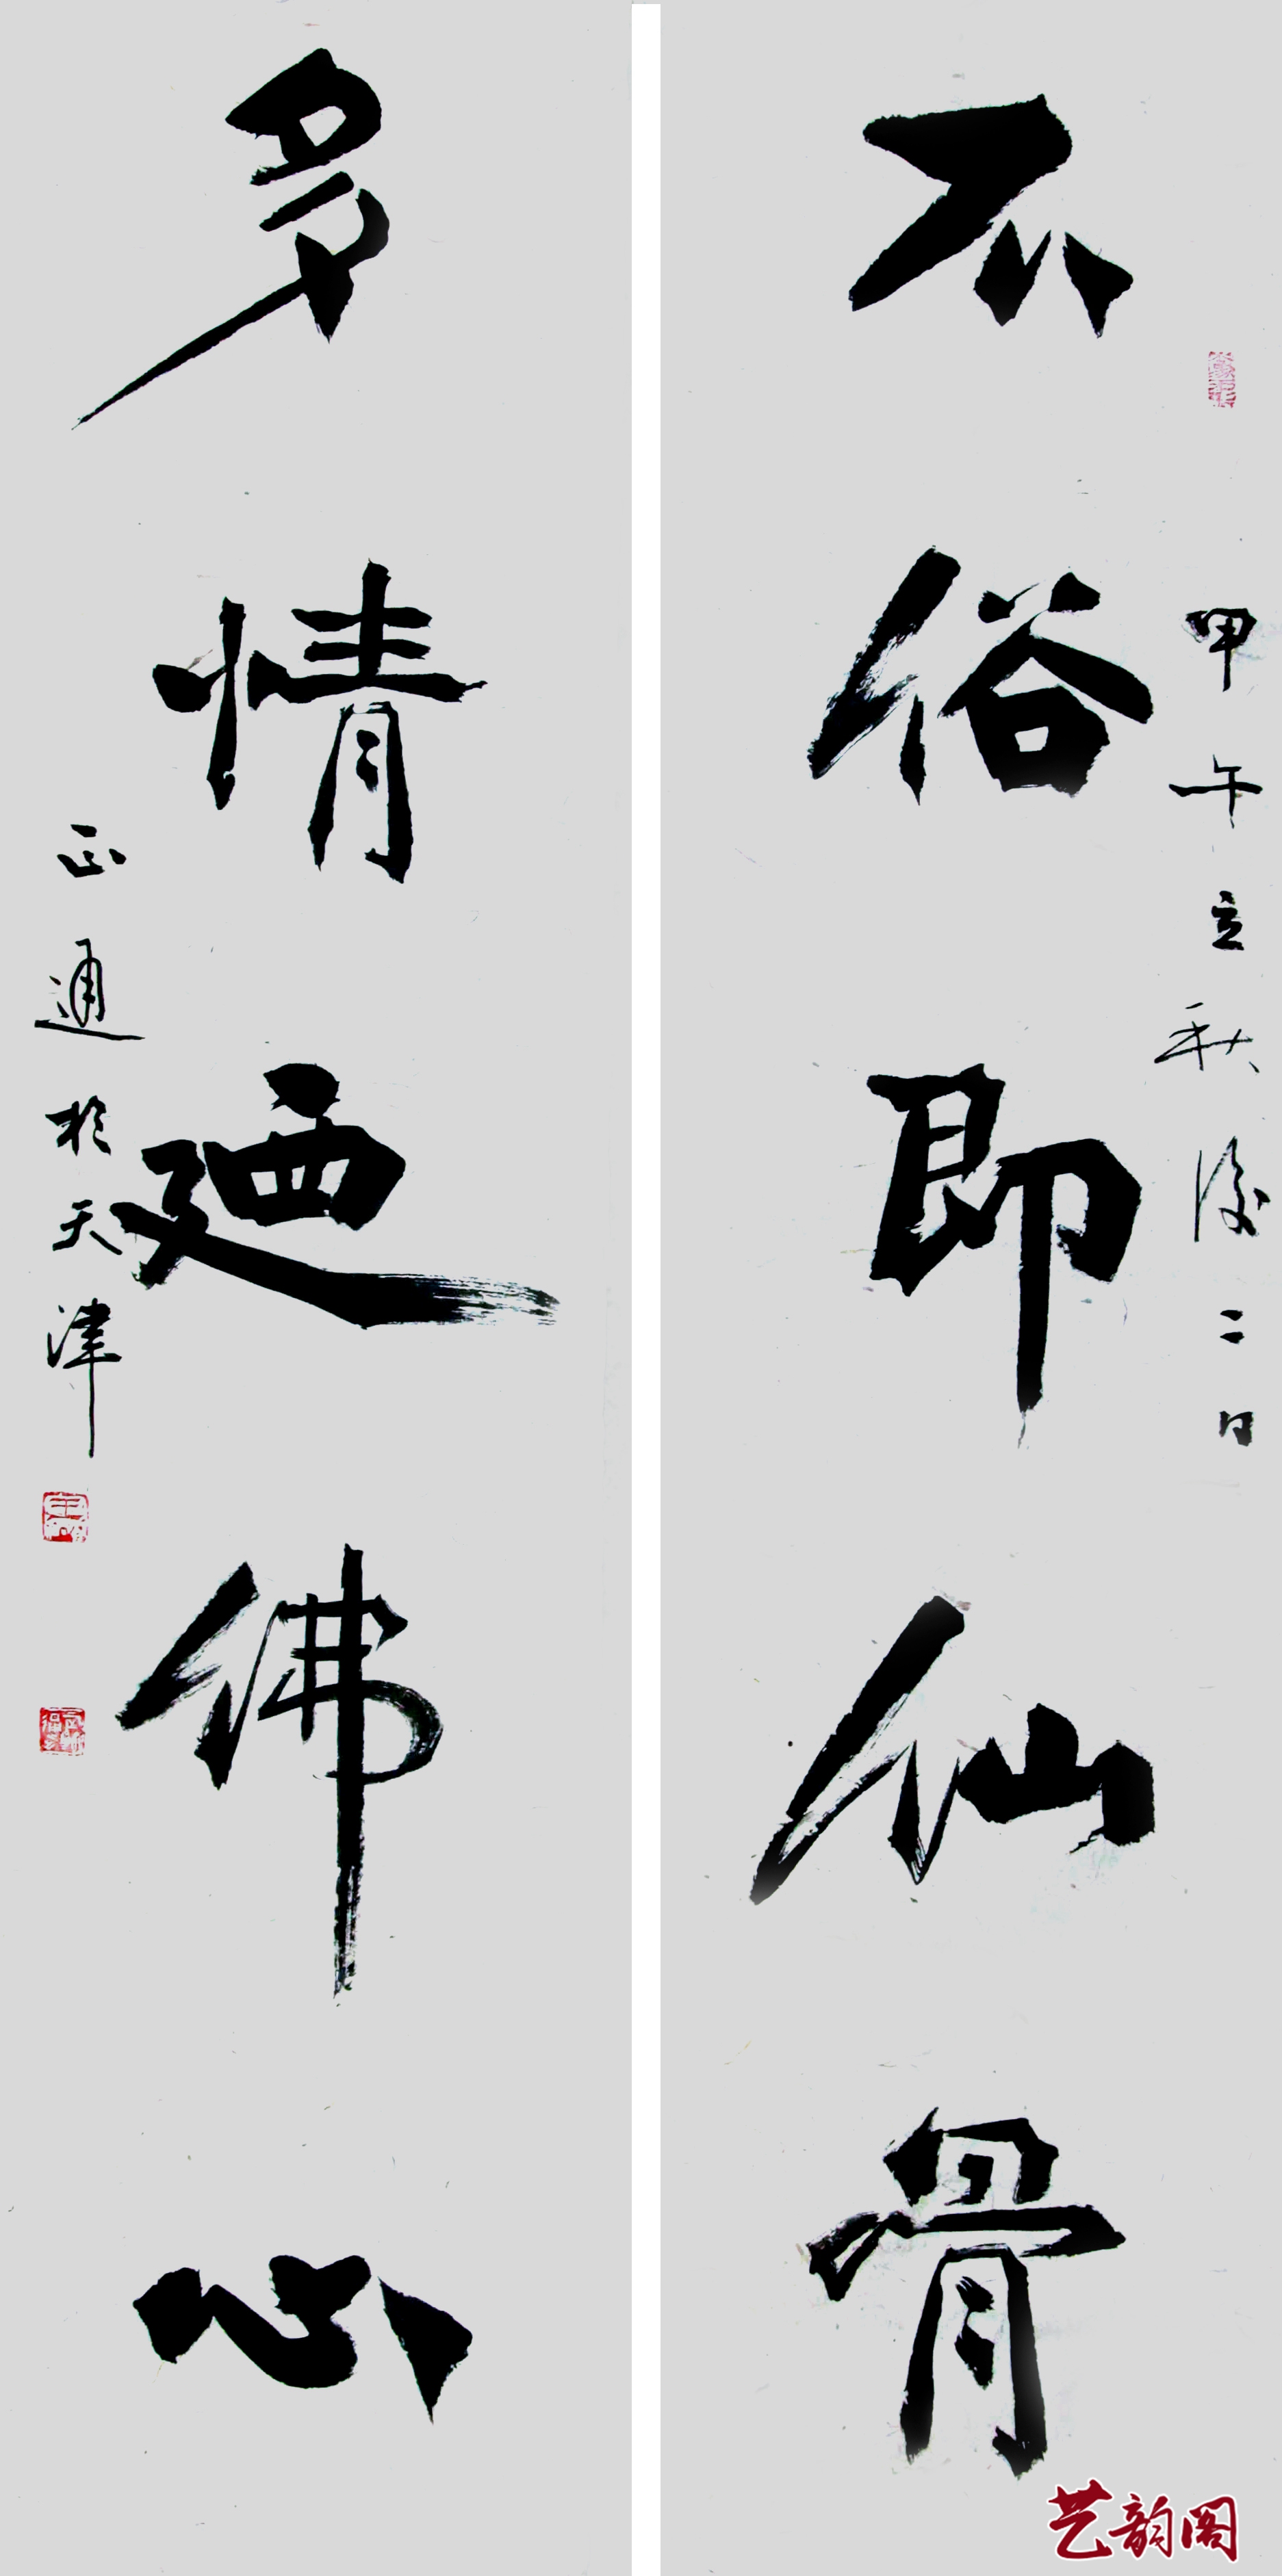 不俗即仙骨
甲午立秋後二日
多情廼佛心
正通於天津
艺韵阁